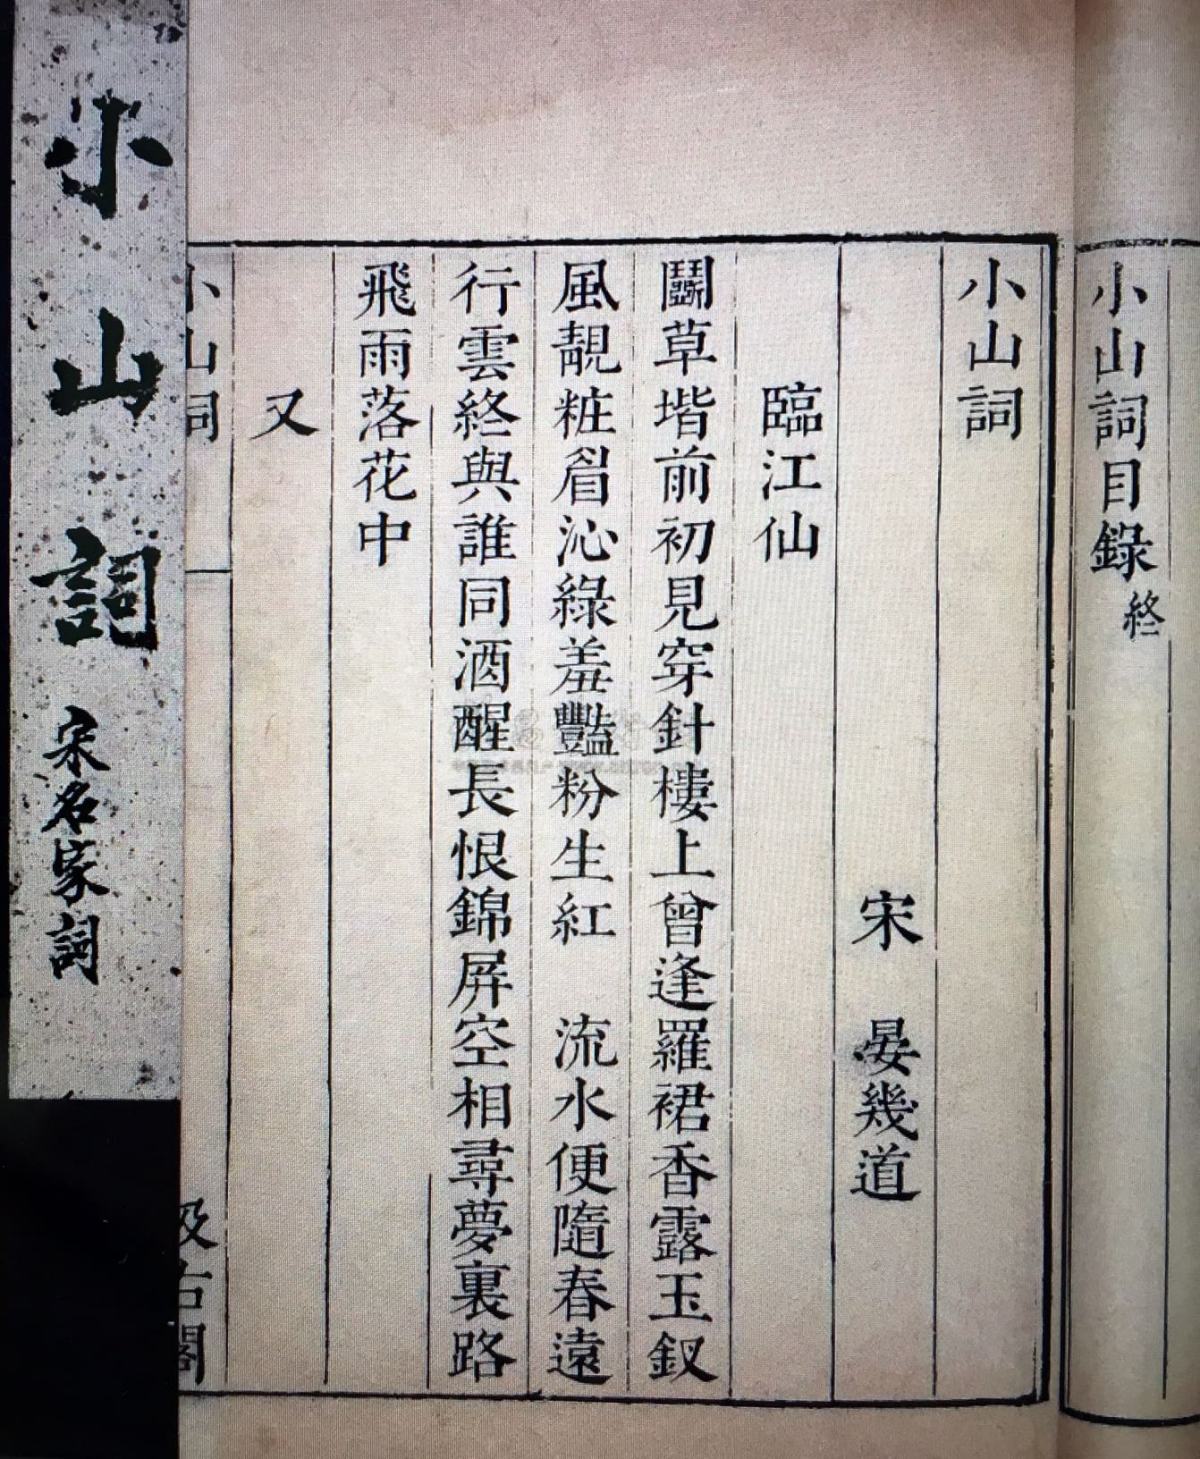 小山詞目錄終
小山詞
宋　晏幾道
臨江仙
鬭草堦前初見穿針樓上曾逢羅裙香露玉釵
風靚粧眉沁綠羞豔粉生紅　流水便隨春遠
行雲終與誰同酒醒長恨錦屏空相尋夢裏路
飛雨落花中
又
小山詞
汲古閣
小山詞
宋名家詞